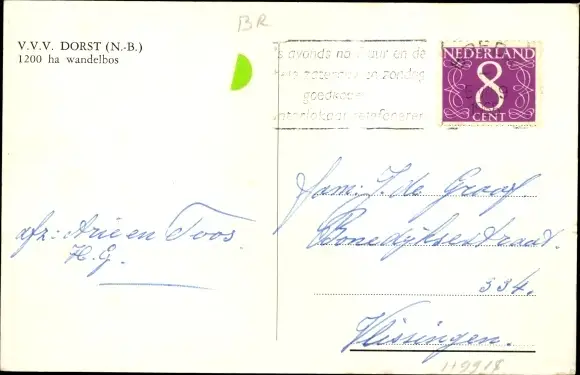 BR
V.V.V. DORST (N.-B.)
1200 ha wandelbos
's avonds na 7 uur en de
hele zaterdag en zondag
goedkoper
interlokaal telefoneren
NEDERLAND
8
CENT
fam: J. de Graaf.
Bonedijksestraat.
334.
Vlissingen.
afz: Arie en Toos.
H.G.